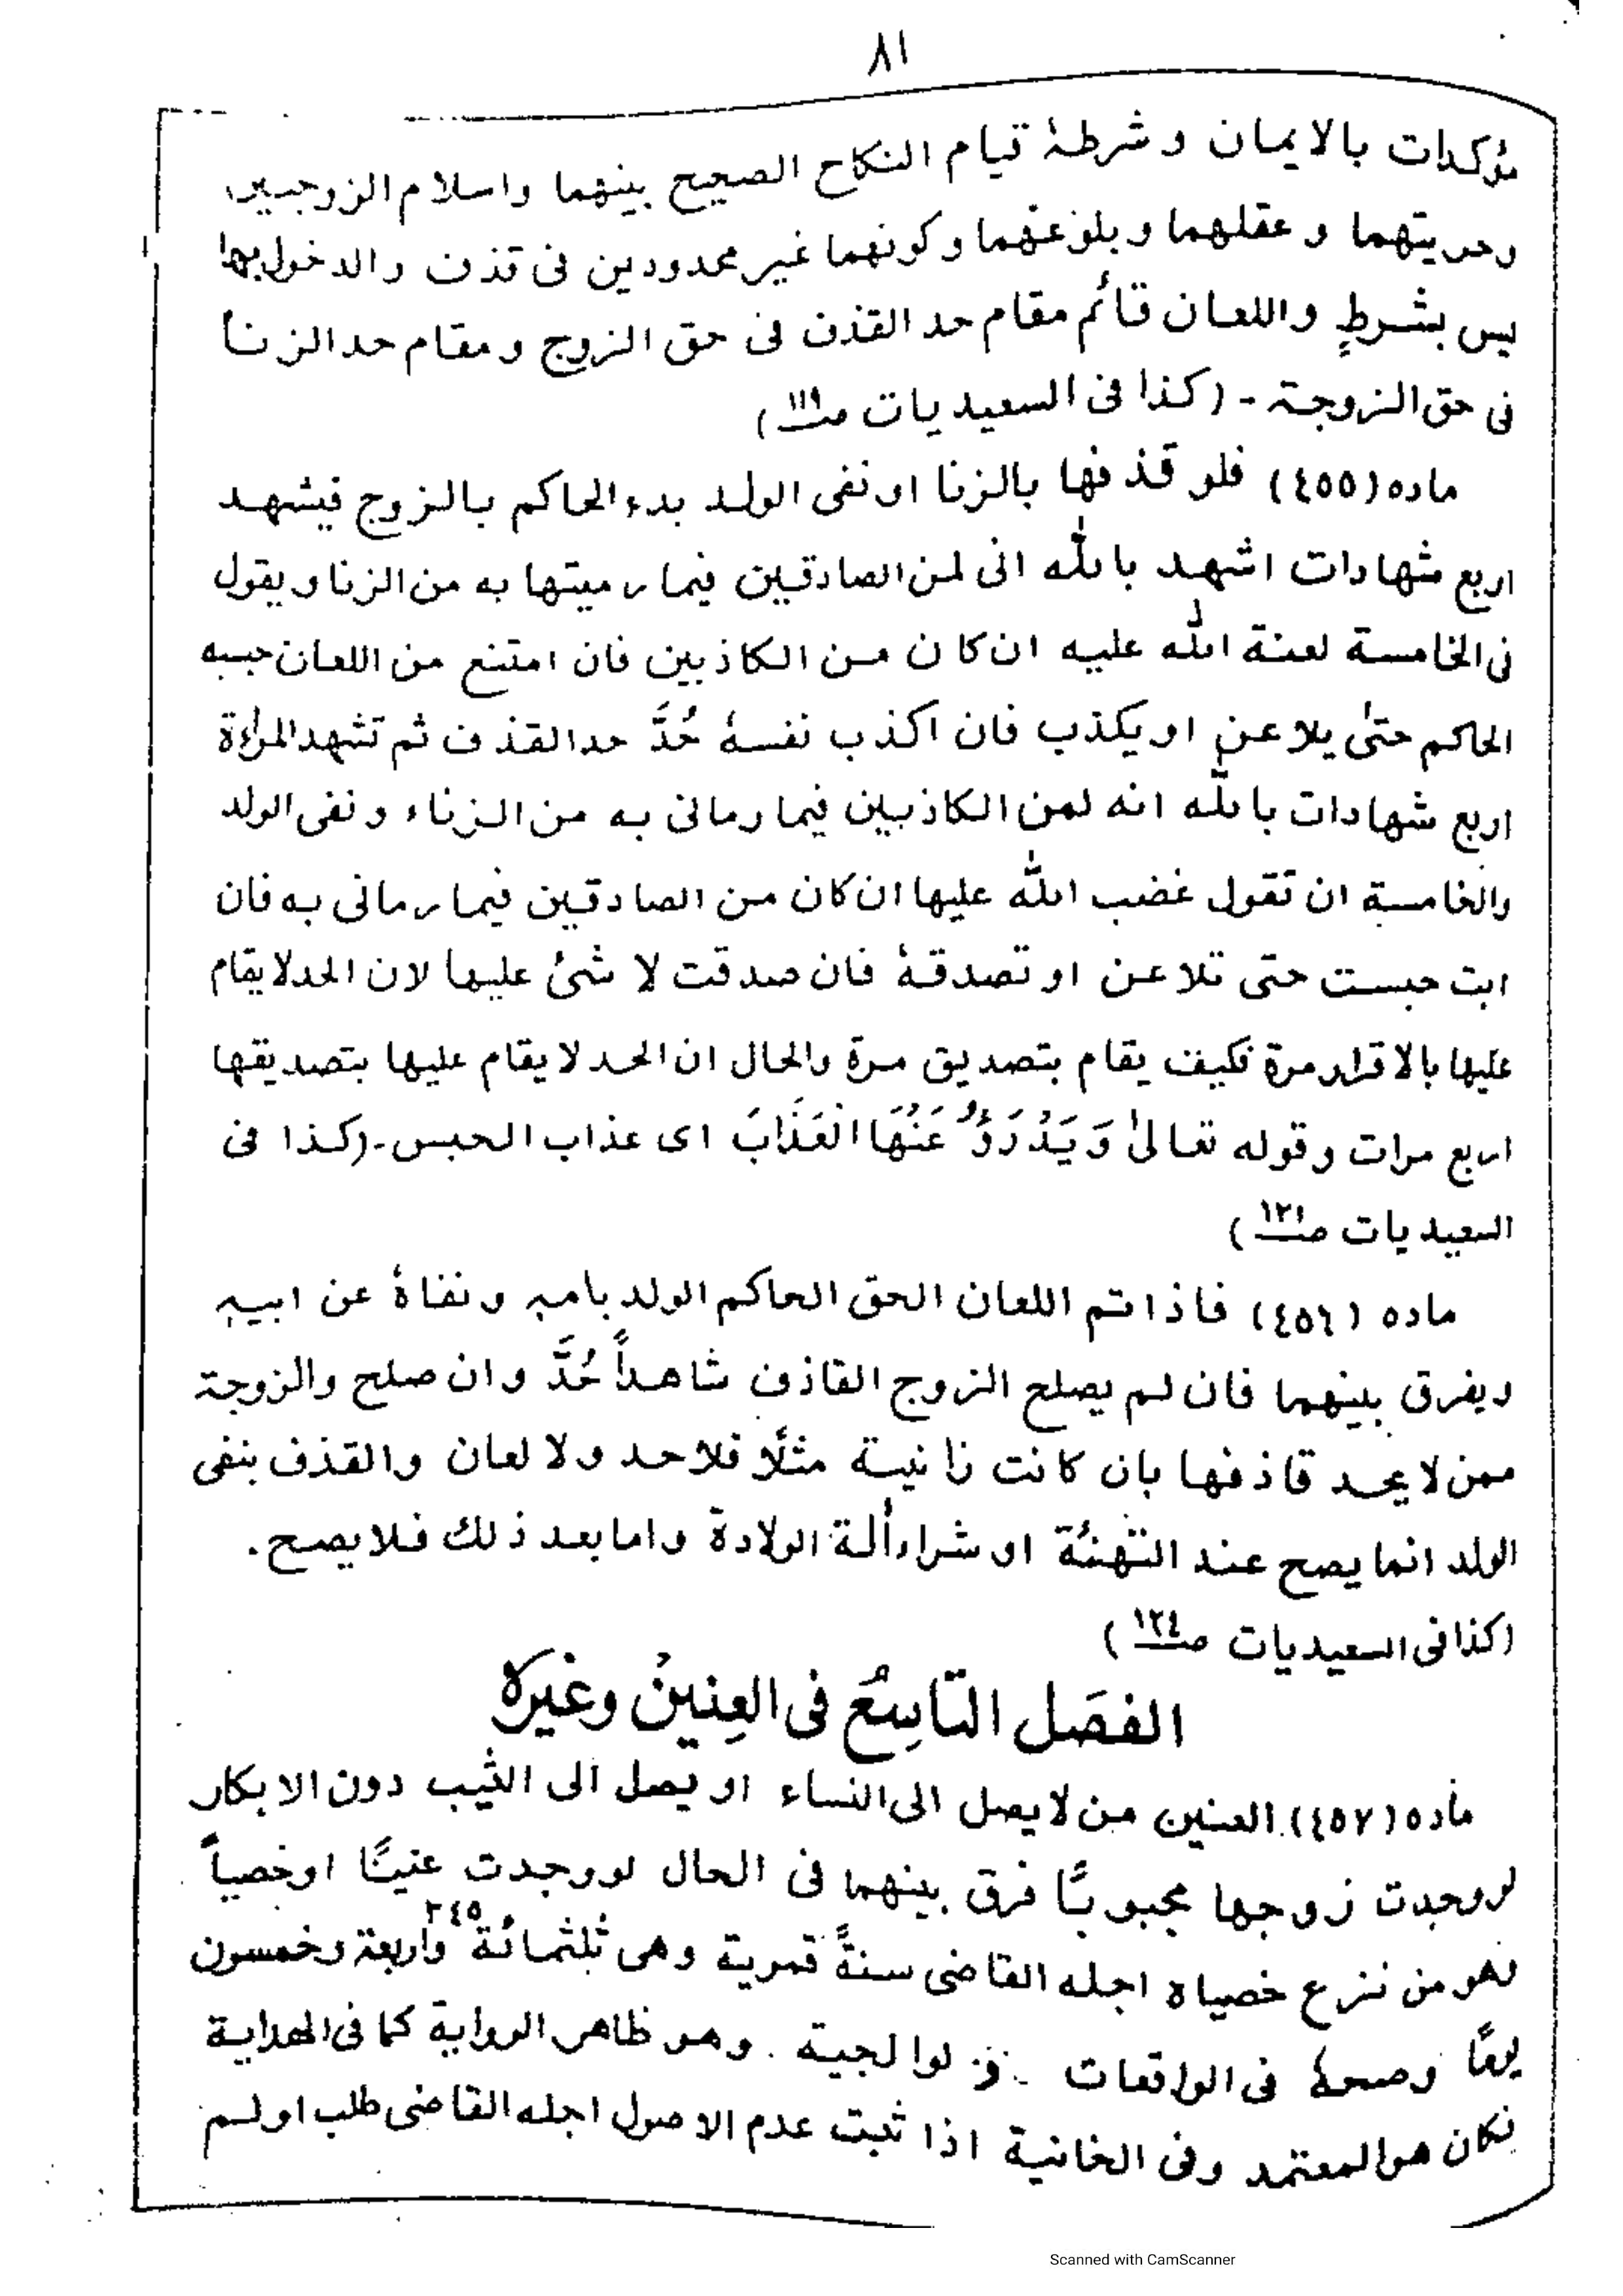 ٨١
مؤكدات بالايمان و شرطهٗ قيام النكاح الصحيح بينهما واسلام الزوجين
وحريتهما و عقلهما و بلوغهما وكونهما غير محدودين فى قذف والدخول بها
ليس بشرطٍ واللعان قائم مقام حد القذف فى حق الزوج و مقام حد الزنا
فى حق الزوجة - (كذا فى السعيديات صـ١١٩)
ماده (٤٥٥) فلو قذفها بالزنا او نفى الولد بدء الحاكم بالزوج فيشهد
اربع شهادات اشهد بالله انى لمن الصادقين فيما رميتها به من الزنا و يقول
فى الخامسة لعنة الله عليه ان كان من الكاذبين فان امتنع من اللعان حبسه
الحاكم حتىٰ يلاعن او يكذب فان اكذب نفسهٗ حُدَّ حد القذف ثم تشهد المرأة
اربع شهادات بالله انه لمن الكاذبين فيما رمانى به من الزناء و نفى الولد
والخامسة ان تقول غضب الله عليها ان كان من الصادقين فيما رمانى به فان
ابت حبست حتى تلاعن او تصدقهٗ فان صدقت لا شئ عليها لان الحد لا يقام
عليها بالاقرار مرة فكيف يقام بتصديق مرة والحال ان الحد لا يقام عليها بتصديقها
اربع مرات و قوله تعالىٰ وَيَدْرَؤُ عَنْهَا الْعَذَابَ اى عذاب الحبس - (كذا فى
السعيديات صـ١٢١)
ماده (٤٥٦) فاذا تم اللعان الحق الحاكم الولد بامه و نفاهٗ عن ابيه
ويفرق بينهما فان لم يصلح الزوج القاذف شاهداً حُدَّ وان صلح والزوجة
ممن لا يحد قاذفها بان كانت زانية مثلًا فلا حد ولا لعان والقذف بنفى
الولد انما يصح عند التهنئة او شراء ألة الولادة واما بعد ذلك فلا يصح .
(كذا فى السعيديات صـ١٢٤)
الفصَل التّاسِعُ فى العِنينُ وغيره
ماده (٤٥٧) العنين من لا يصل الى النساء او يصل الى الثيب دون الابكار
لو وجدت زوجها مجبوبًا فرق بينهما فى الحال لو وجدت عنينًا او خصياً
٣٤٥
وهو من نزع خصياه اجله القاضى سنةً قمرية وهى ثلثمائة واربعة وخمسون
يومًا وصححها فى الواقعات . و لوالجية . وهو ظاهر الرواية كما فى الهداية
فكان هو المعتمد وفى الخانية اذا ثبت عدم الاصول اجله القاضى طلب او لم
Scanned with CamScanner